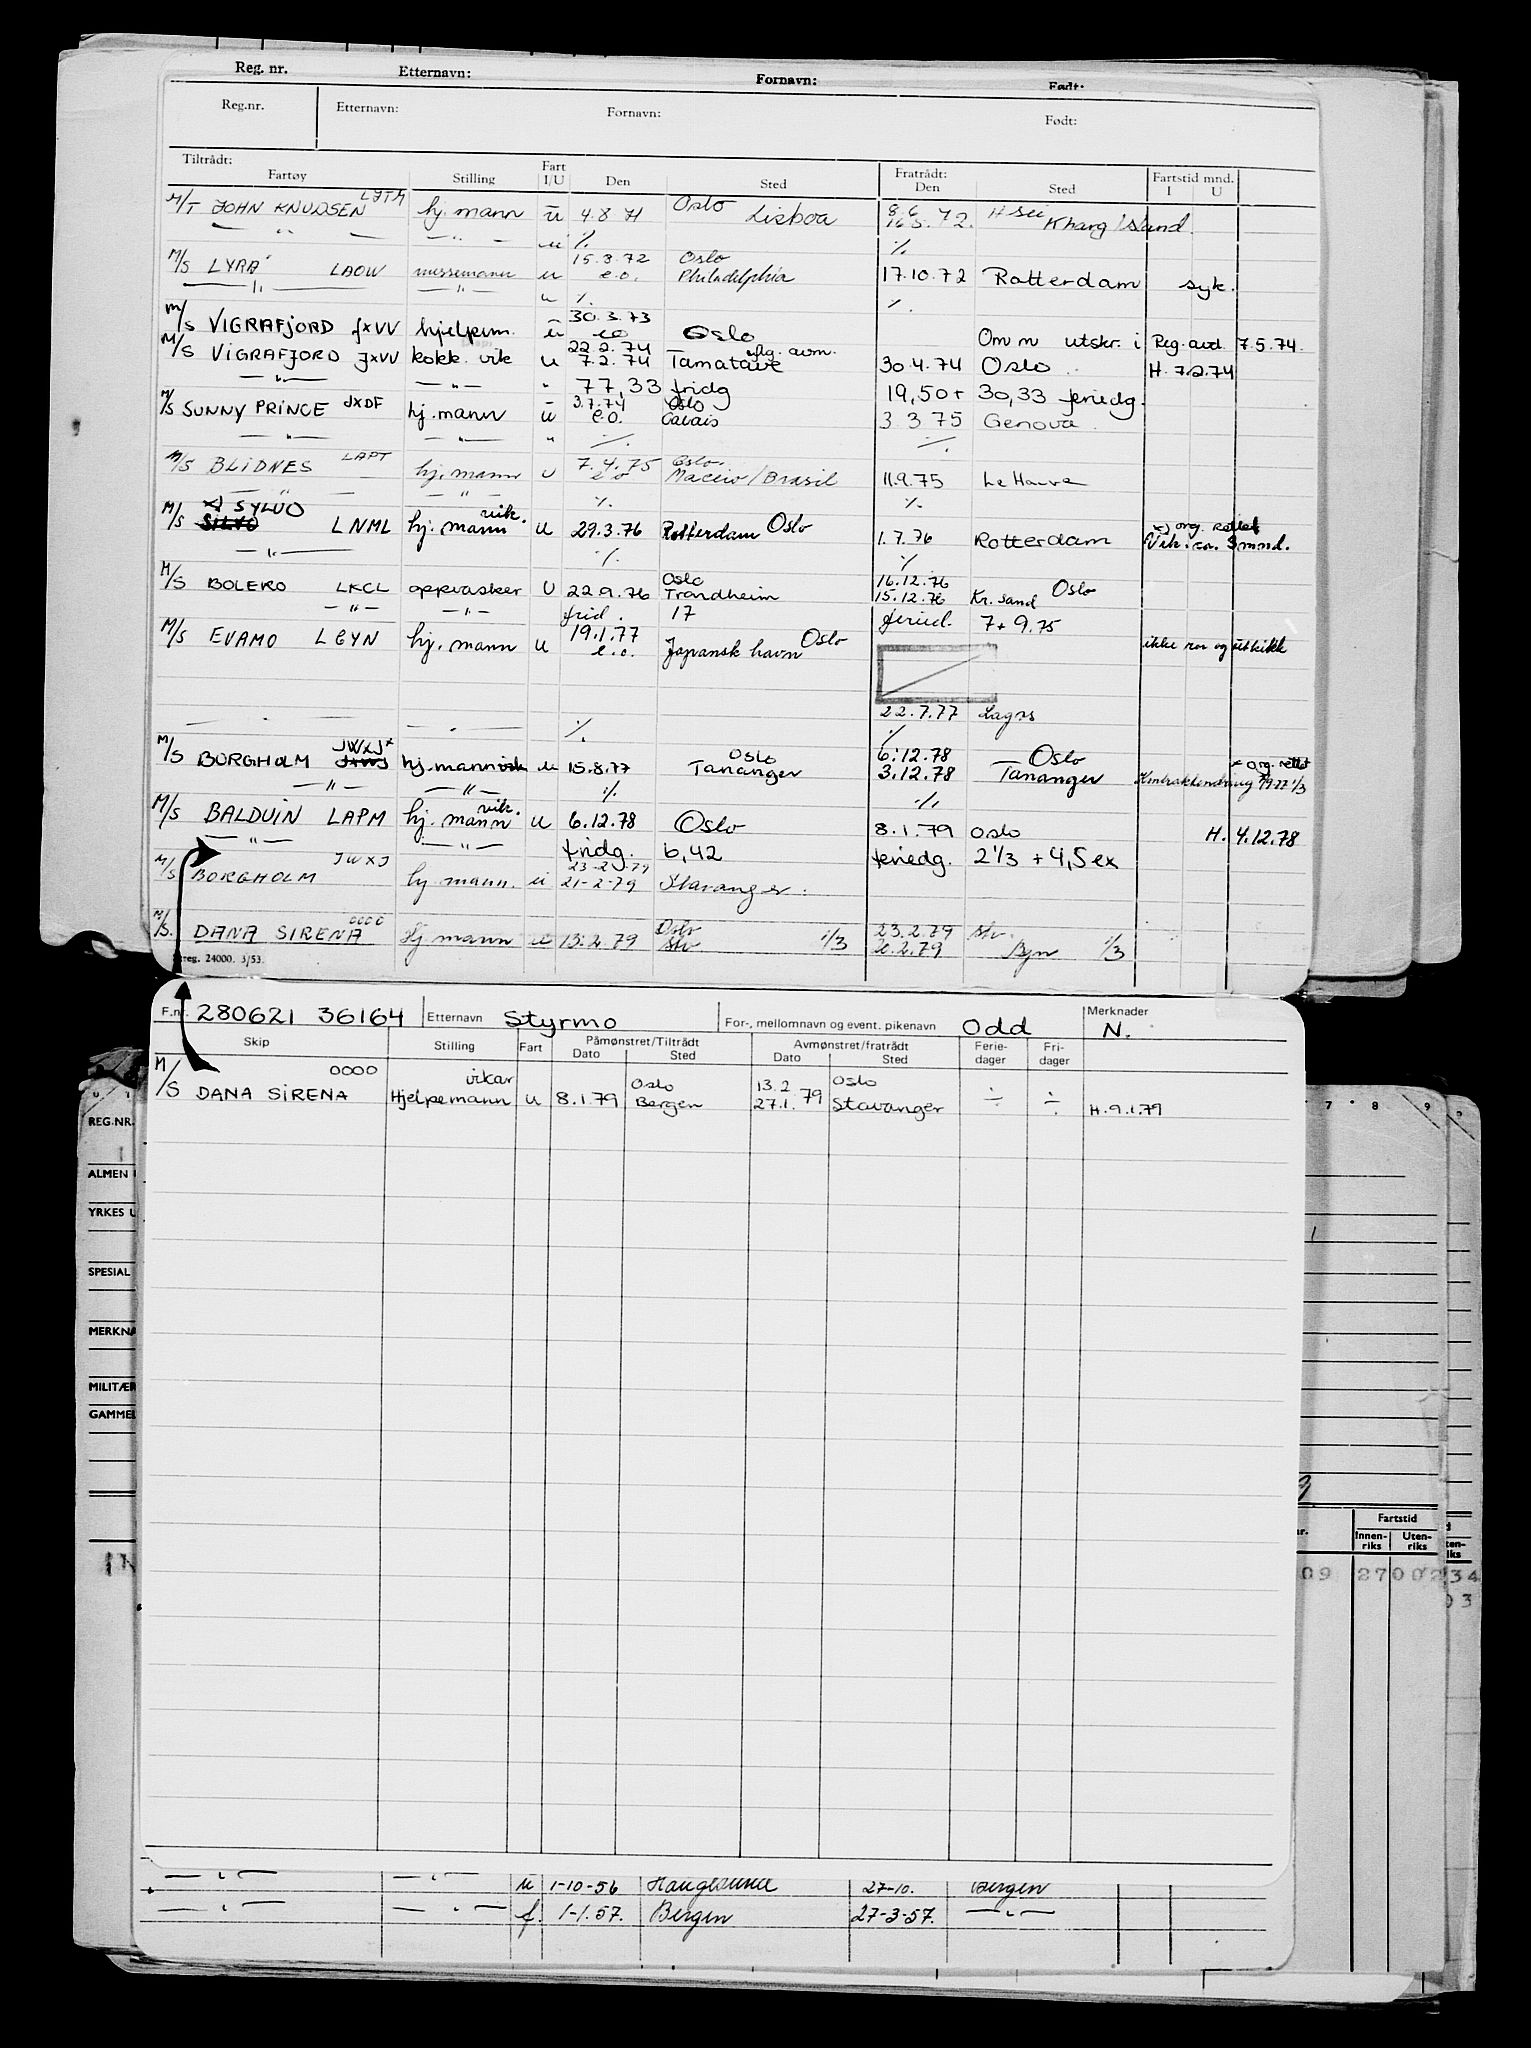 Reg. nr. Etternavn: Fornavn: Født:
Reg.nr. Etternavn: Fornavn: Født:
Tiltrådt: Fart Fratrådt: Fartstid mnd.
Fartøy Stilling I/U Den Sted Den Sted I U
M/T JOHN KNUDSEN hj. mann u 4.8 71 Oslo Lisboa 72. Kharg Island
— " — — " — u ./. ./.
15.3.72 Oslo
M/S LYRA LAOW messemann u e.o. Philadelphia 17.10.72 Rotterdam syk.
— " — — " — u ./. ./.
30.3.73
M/S VIGRAFJORD JXVV hjelpem. u eo Oslo Omm utskr. i Reg. avd. 7.5.74.
22.2.74 avm.
M/S VIGRAFJORD JXVV kokk vik u 7.2.74 Tamatave 30.4.74 Oslo H. 7.2.74
— " — — " — " 77,33 fridg 19,50 + 30,33 feriedg.
3.7.74 Oslo
M/S SUNNY PRINCE JXDF hj. mann u e.o. Calais 3.3.75 Genova
— " — — " — " ./. ./.
7.4.75 Oslo
M/S BLIDNES LAPT hj. mann u e o Maceio/Brasil 11.9.75 Le Havre
— " — — " — ./. ./.
x) SYLVO vik. x) org. rettet
M/S LNML hj. mann u 29.3.76 Rotterdam Oslo 1.7.76 Rotterdam Vik. ca. 3 mnd.
— " — ./. ./.
Oslo 16.12.76
M/S BOLERO LKCL oppvasker U 22.9.76 Trondheim 15.12.76 Kr. sand Oslo
— " — — " — frid. 17 feried. 7 + 9.75
19.1.77
M/S EVAMO LEYN hj. mann u e.o. Japansk havn Oslo ikke ror og utkikk
22.7.77 Lagos
— " — — " — ./. ./.
JWXJ x Oslo 6.12.78 Oslo x org. rettet
M/S BORGHOLM hj. mann u 15.8.77 Tananger 3.12.78 Tananger
— " — — " — ./. ./.
vik.
M/S BALDUIN LAPM hj. mann u 6.12.78 Oslo 8.1.79 Oslo H. 4.12.78
— " — — " — fridg. 6,42 feriedg. 2 1/3 + 4,5 ex
M/S BORGHOLM JWXJ hj. mann. u 21-2-79 Stavanger.
0000 Oslo 23.2.79 Stv.
M/S. DANA SIRENA Hj mann u 13.2.79 Stv. 1/3 2.2.79 Bgn 1/3
reg. 24000. 3/53.
F.nr. 280621 36164 Etternavn Styrmo For-, mellomnavn og event. pikenavn Odd Merknader N.
Skip Stilling Fart Påmønstret/Tiltrådt Avmønstret/fratrådt Ferie- Fri-
Dato Sted Dato Sted dager dager
0000 vikar Oslo 13.2 Oslo
M/S DANA SIRENA Hjelpemann u 8.1.79 Bergen 27.1. 79 Stavanger ÷ ÷ H. 9.1.79
REG.NR.
ALMEN
YRKES U
SPESIAL
MERKNA
MILITÆR
GAMMEL
7 8 9
Fartstid
Innen- Uten-
riks riks
09 2700234
03
— " — — " — u 1-10-56 Haugesund 27-10. Bergen
— " — — " — f. 1-1.57. Bergen 27-3-57. — " —